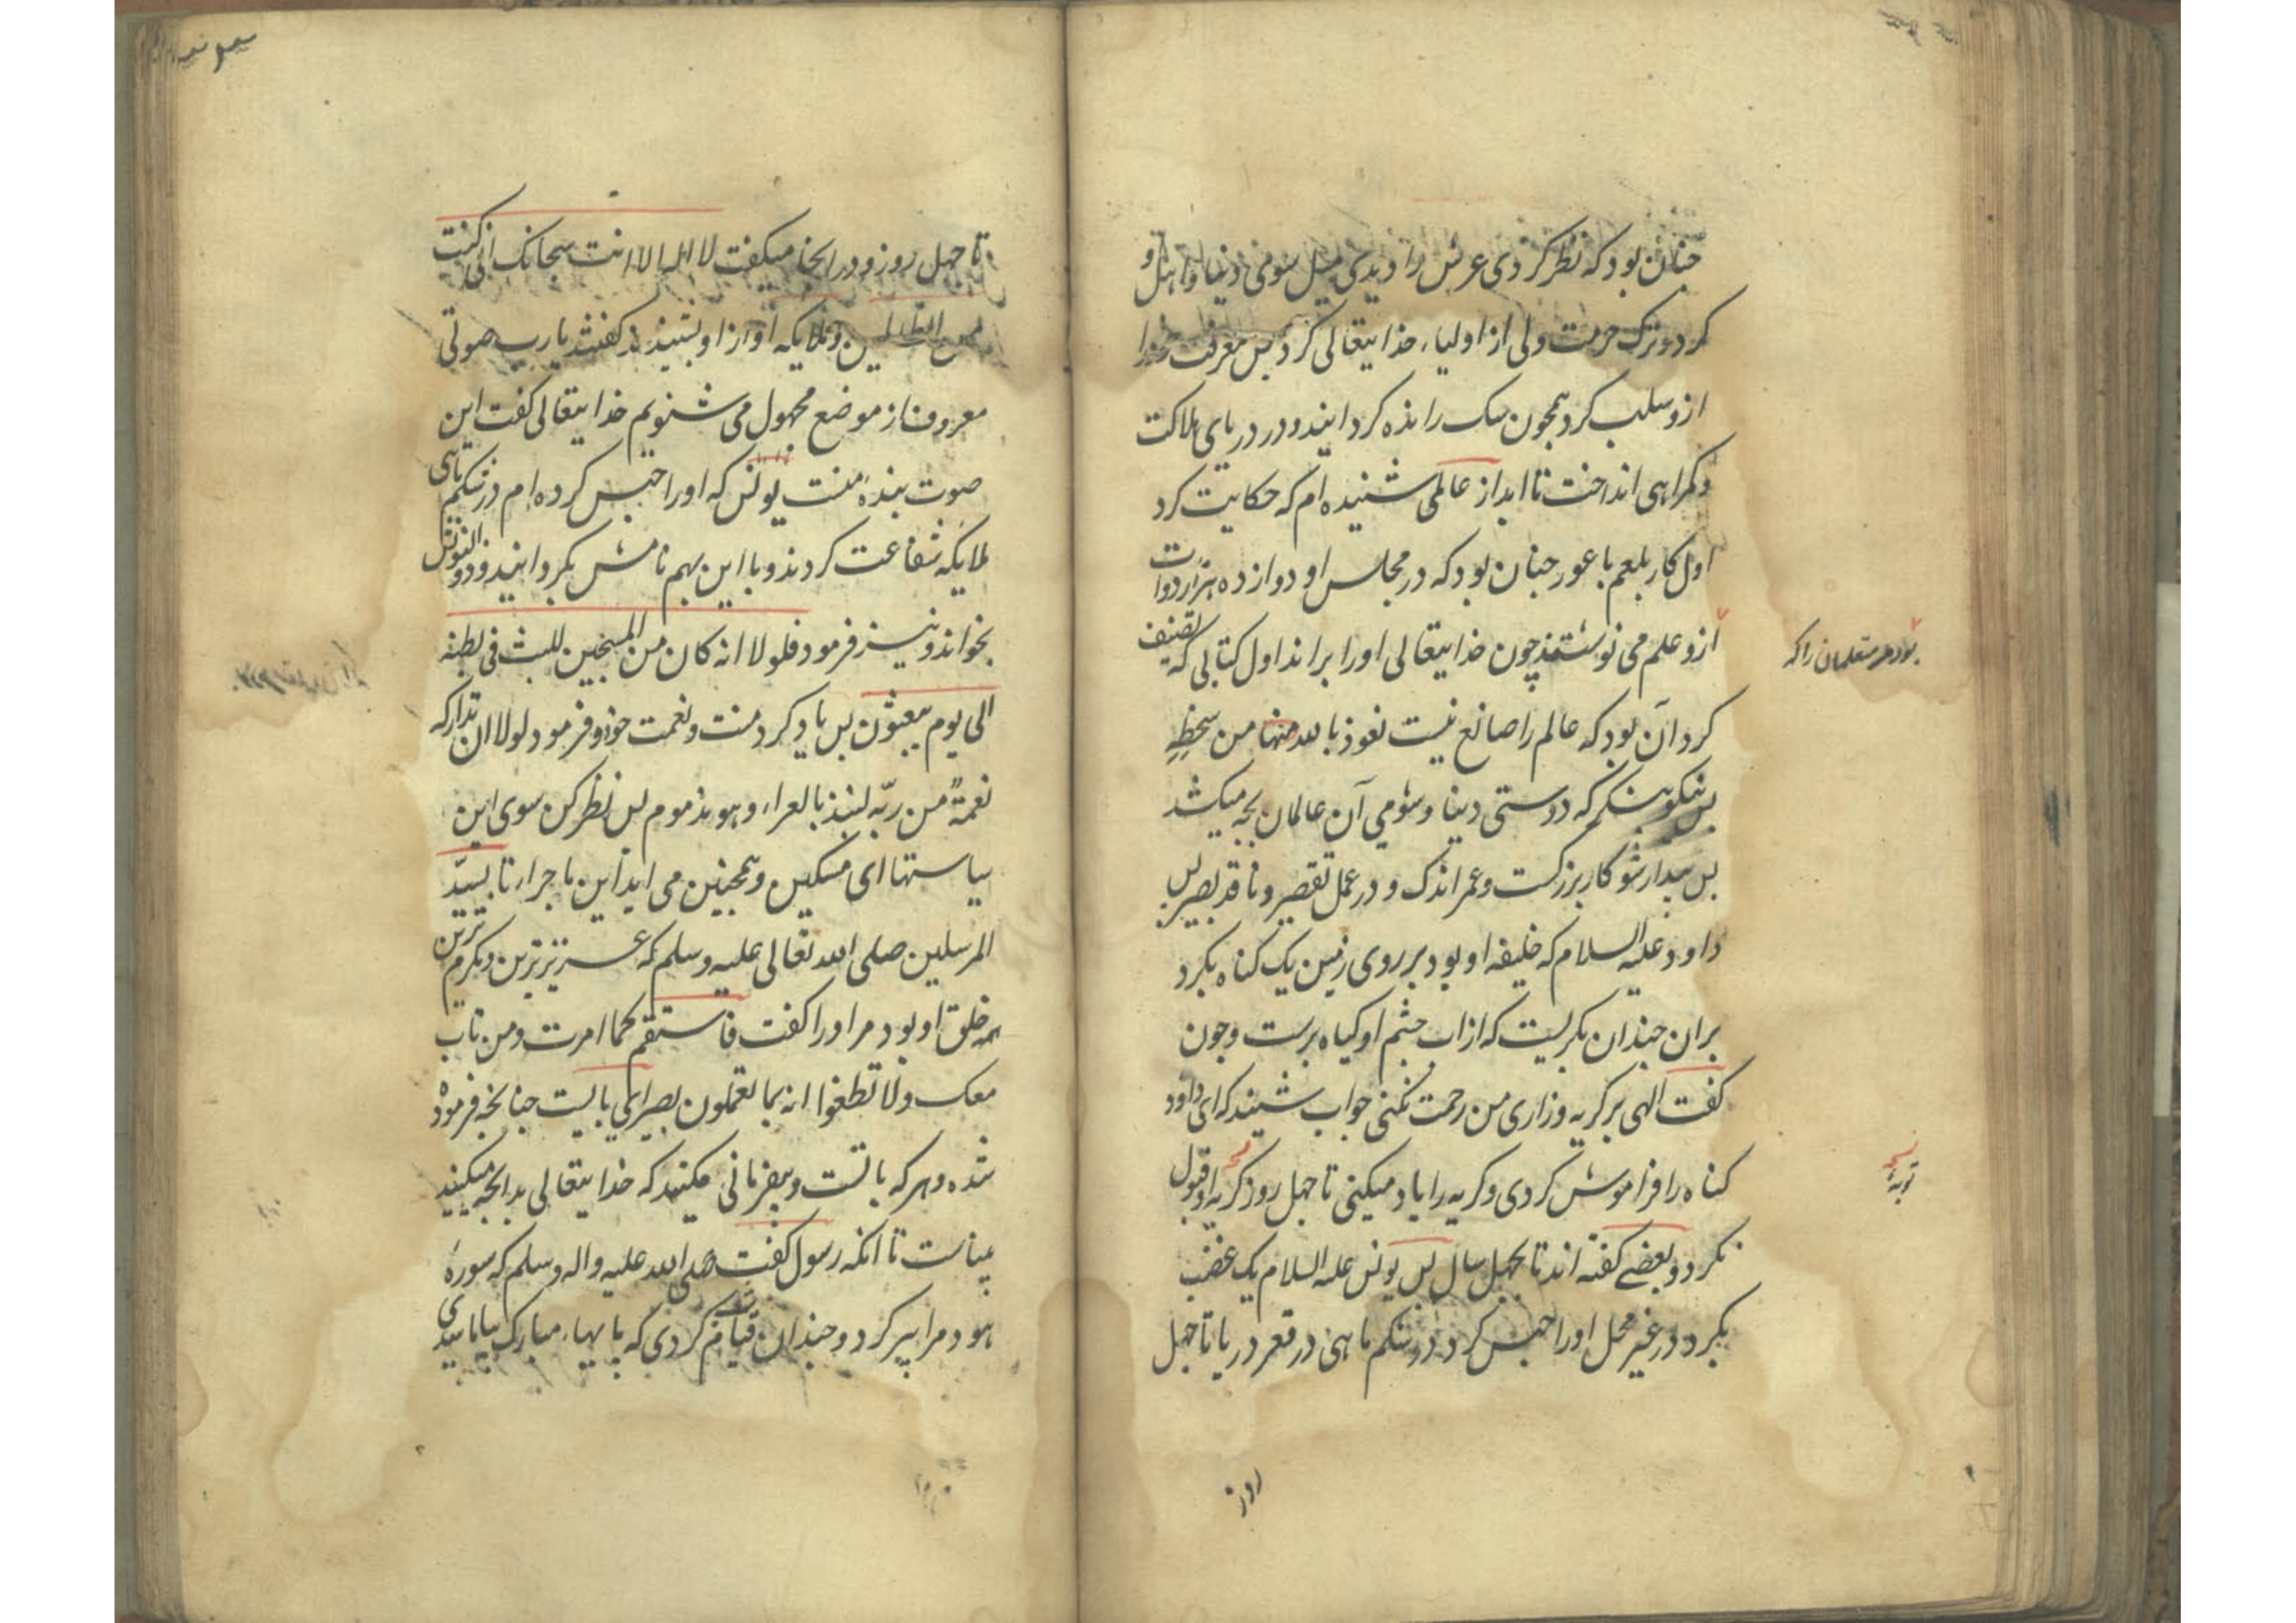 چنان بود که نظر کردی عرش را دیدی میل سوی دنیا و اهل او
کرد و ترک حرمت ولی از اولیاء خدایتعالی کرد بس معرفت خود را
ازو سلب کرد همچون سک رانده کردانید و در دریای هلاکت
و کمراهی انداخت تا ابد از عالمی شنیده ام که حکایت کرد
اول کار بلعم باعور چنان بود که در مجلس او دوازده هزار دوات
بود مر متعلمان را که
ازو علم می نوشتند چون خدایتعالی او را براند اول کتابی که تصنیف
کرد آن بود که عالم را صانع نیست نعوذ بالله منها من سخطه
بس نیکو بنکر که دوستی دنیا و شومی آن عالمان بچه میکشد
بس بیدار شو کار بزرکست و عمر اندک و در عمل تقصیر و ناقد بصیر بس
داود علیه السلام که خلیفه او بود بر روی زمین یک کناه بکرد
بران چندان بکریست که از اب چشم او کیاه برست و چون
کفت الهی بر کریه و زاری من رحمت نکنی جواب شنید که ای داود
کناه را فراموش کردی و کریه را یاد میکنی تا چهل روز کریه او قبول
توبهٔ
نکرد و بعضے کفته اند تا بچهل سال بس یونس علیه السلام یک غضب
بکرد در غیر محل او را حبس کرد در شکم ماهی در قعر دریا تا چهل
روز
تا چهل روز و در انجا میکفت لا اله الا انت سبحانک انی کنت
من الظالمین و ملایکه آواز او بشنیدند کفتند یا رب صوتی
معروف از موضع مجهول می شنویم خدایتعالی کفت این
صوت بندهٔ منست یونس که او را حبس کرده ام در شکم ماهی
ملایکه شفاعت کردند و با این بهم نامش بکردانید و ذو النونش
بخواند و نیز فرمود فلولا انه کان من المسبحین للبث فی بطنه
الی یوم یبعثون بس یاد کرد منت و نعمت خود و فرمود لولا ان تدارکه
نعمةٌ من ربّه لنبذ بالعراء و هو مذموم بس نظر کن سوی این
سیاستها ای مسکین و همچنین می اید این ماجراء تا بسیّد
المرسلین صلی الله تعالی علیه و سلم که عزیزترین و مکرم ترین
همه خلق او بود مر او را کفت فاستقم کما امرت و من تاب
معک و لا تطغوا انه بما تعملون بصیر ای بالیست چنانچه فرموده
شده و هر که با تست و بیفرمانی مکنید که خدایتعالی بدانچه میکنید
بیناست تا انکه رسول کفت صلی الله علیه و اله و سلم که سورهٔ
هود مرا پیر کرد و چندان قیام کردی که پایهاء مبارک